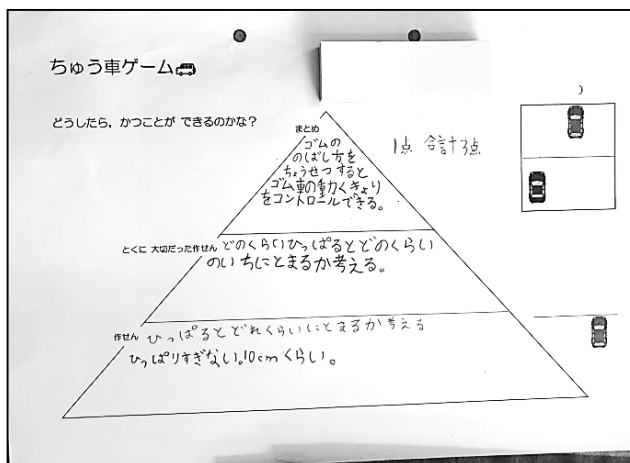 ちゅう車ゲーム
どうしたら，かつことが できるのかな？
)
まとめ
ゴムの
のばし方を
ちょうせつすると
ゴム車の動くきょり
をコントロールできる。
1点 合計3点
とくに 大切だった作せん
どのくらいひっぱるとどのくらい
のいちにとまるか考える。
作せん
ひっぱるとどれくらいにとまるか考える
ひっぱりすぎない。10cmくらい。